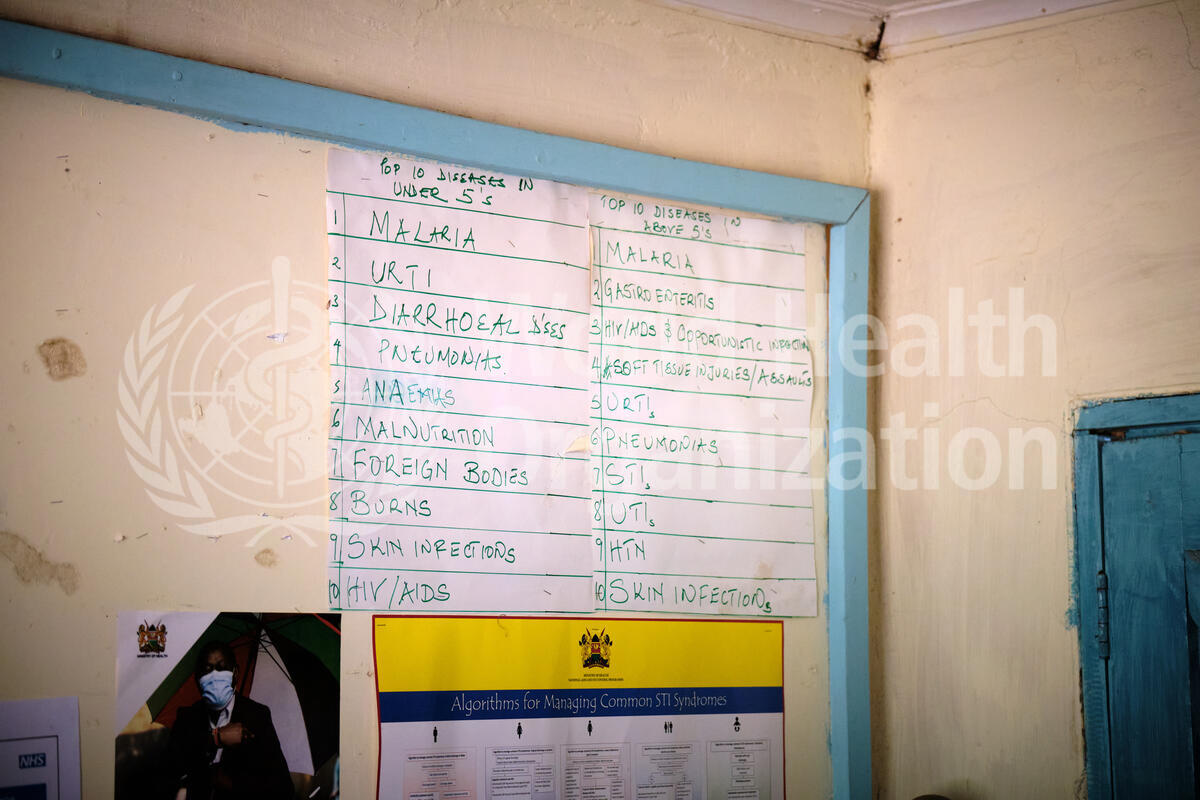 TOP 10 DISEASES IN
UNDER 5's
1 MALARIA
2 URTI
3 DIARRHOEAL D'SES
4 PNEUMONIAS.
5 ANAEMIAS
6 MALNUTRITION
7 FOREIGN BODIES
8 BURNS
9 SKIN INFECTIONS
10 HIV/AIDS
TOP 10 DISEASES IN
ABOVE 5's
1 MALARIA
2 GASTROENTERITIS
3 HIV/AIDS & OPPORTUNISTIC INFECTION
4 SOFT TISSUE INJURIES/ASSAULTS
5 URTIs
6 PNEUMONIAS
7 STIs
8 UTIs
9 HTN
10 SKIN INFECTIONs
World Health
Organization
MINISTRY OF HEALTH
MINISTRY OF HEALTH
Algorithms for Managing Common STI Syndromes
NHS